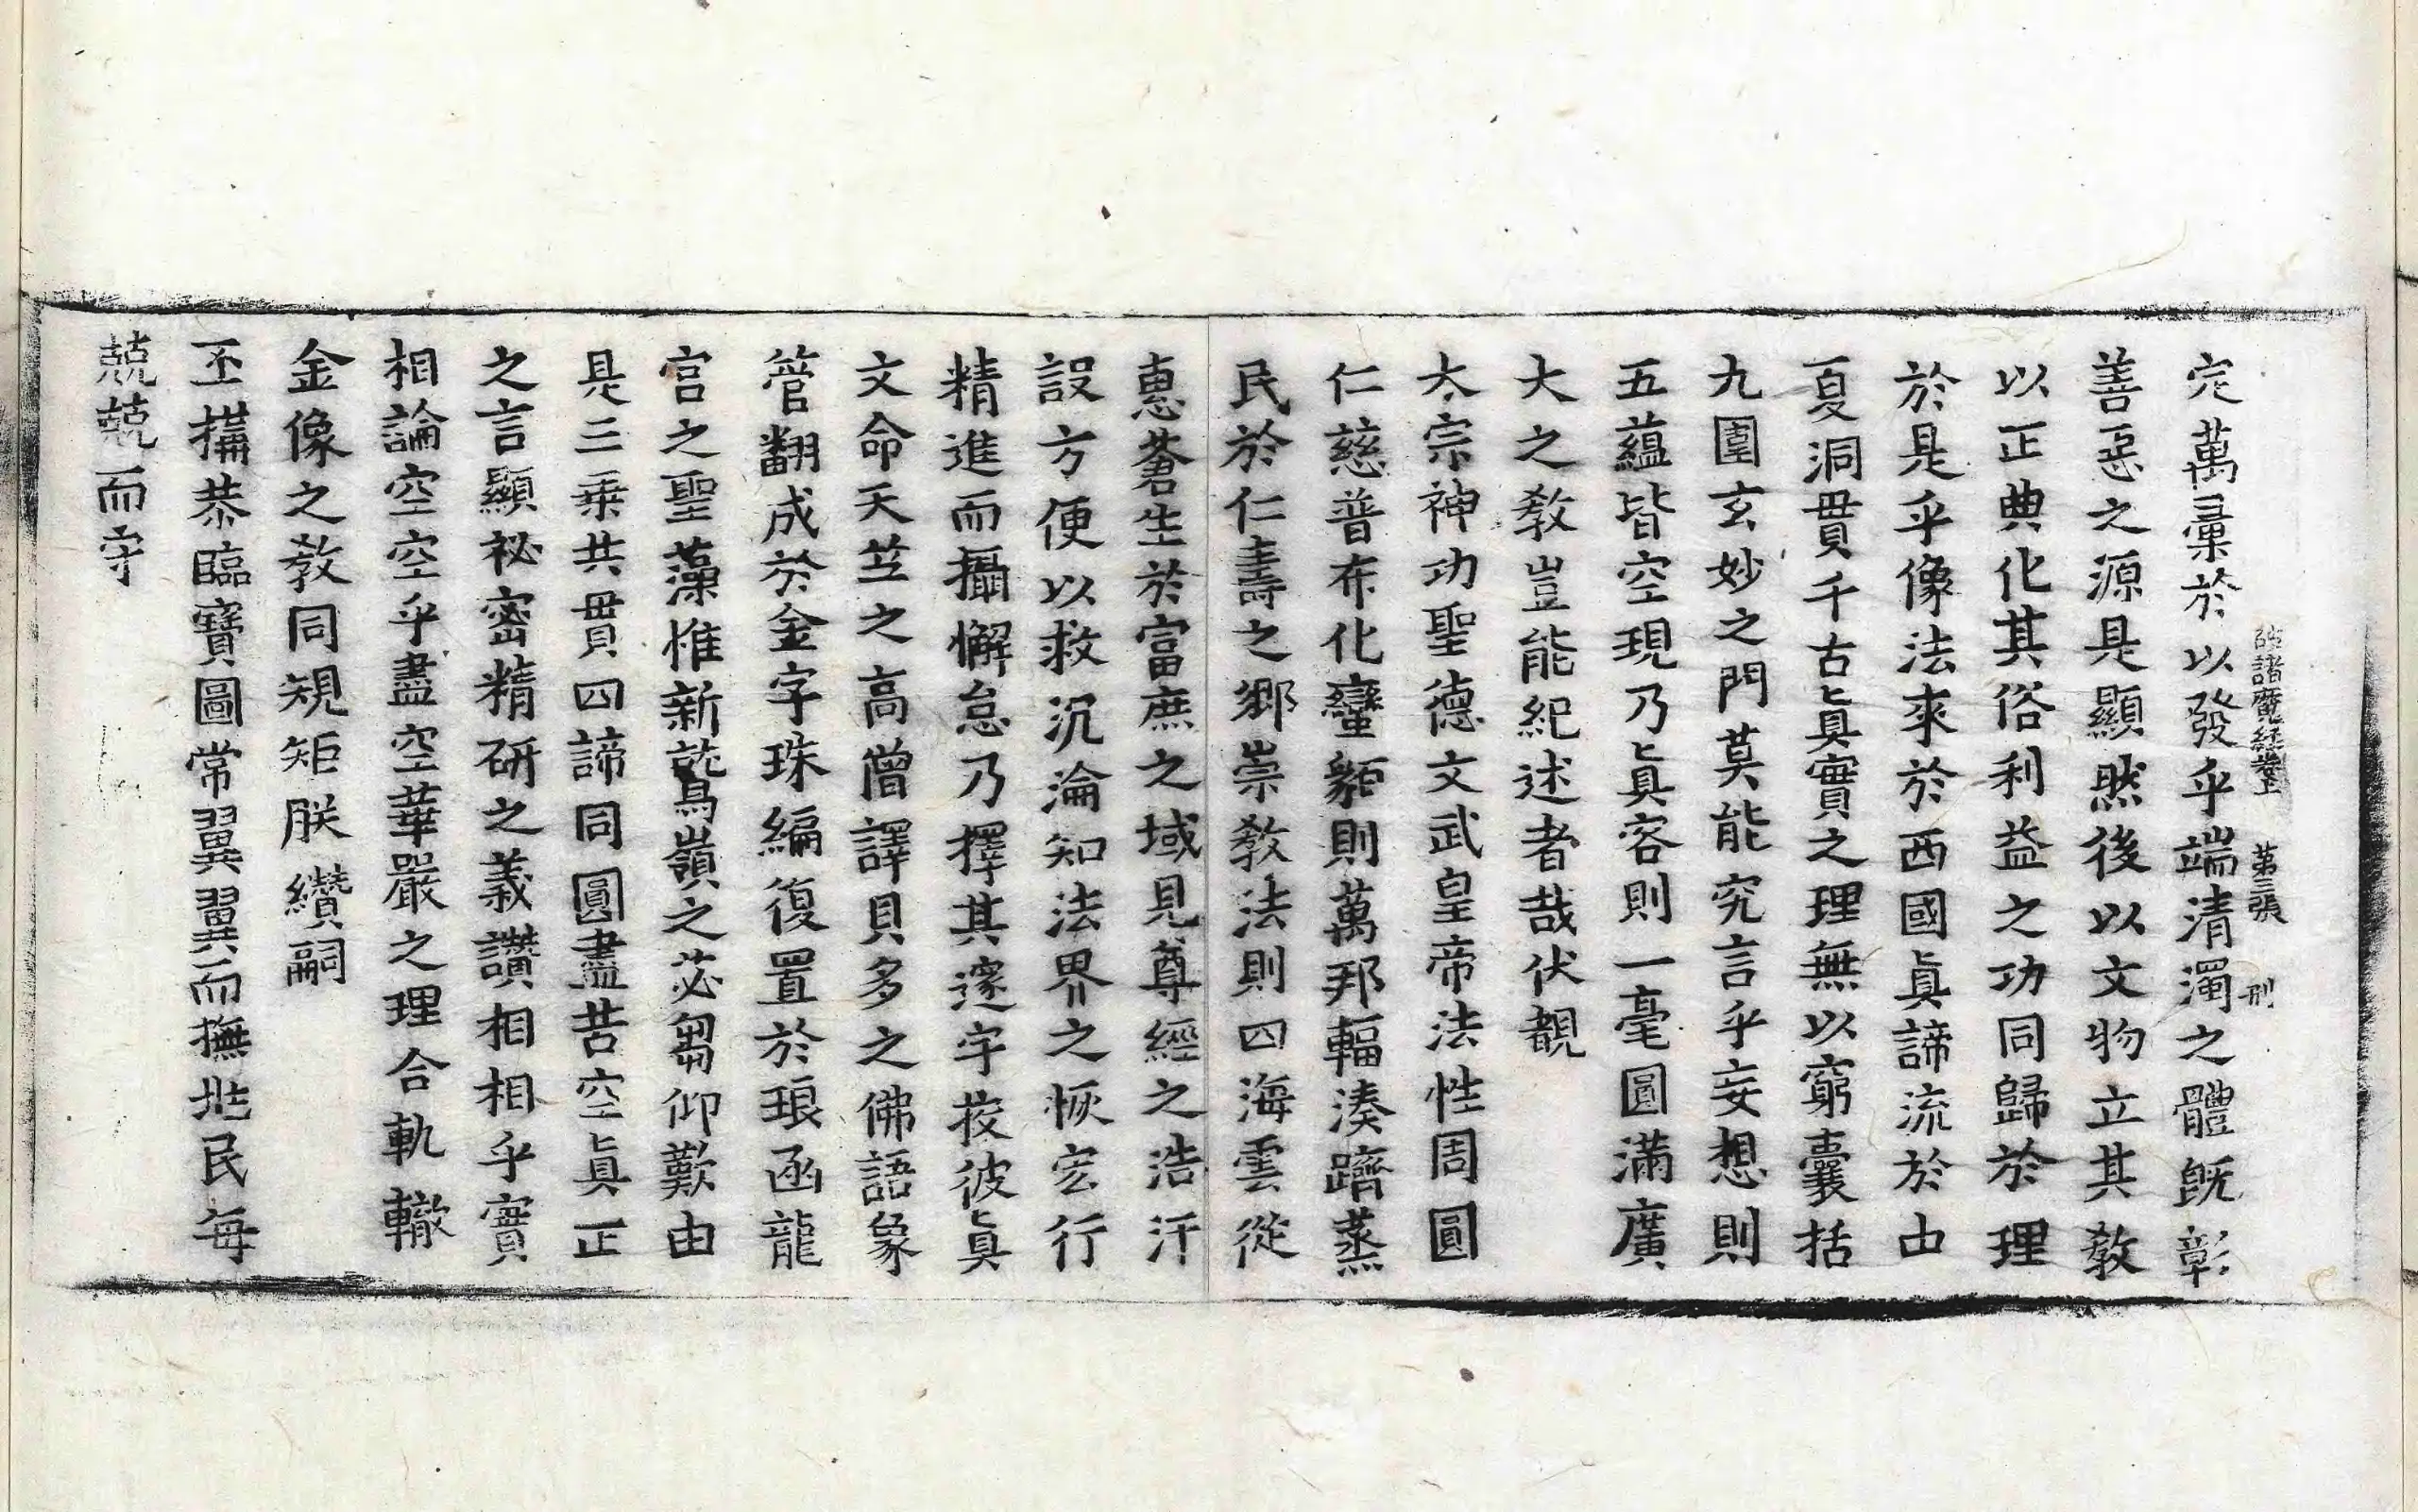 諸魔經卷上 第三張 刑
定萬彙於以發乎端清濁之體旣彰
善惡之源是顯然後以文物立其敎
以正典化其俗利益之功同歸於理
於是乎像法來於西國眞諦流於中
夏洞貫千古眞實之理無以窮囊括
九圍玄妙之門莫能究言乎妄想則
五蘊皆空現乃眞容則一毫圓滿廣
大之敎豈能紀述者哉伏覩
太宗神功聖德文武皇帝法性周圓
仁慈普布化蠻貊則萬邦輻湊躋蒸
民於仁壽之鄉崇敎法則四海雲從
惠蒼生於富庶之域見尊經之浩汗
設方便以救沉淪知法界之恢宏行
精進而攝懈怠乃擇其邃宇挍彼眞
文命天竺之高僧譯貝多之佛語象
管翻成於金字珠編復置於琅函龍
宮之聖藻惟新鷲嶺之苾蒭仰歎由
是三乘共貫四諦同圓盡苦空眞正
之言顯祕密精硏之義讚相相乎實
相論空空乎盡空華嚴之理合軌轍
金像之敎同規矩朕纘嗣
丕搆恭臨寶圖常翼翼而撫兆民每
兢兢而守